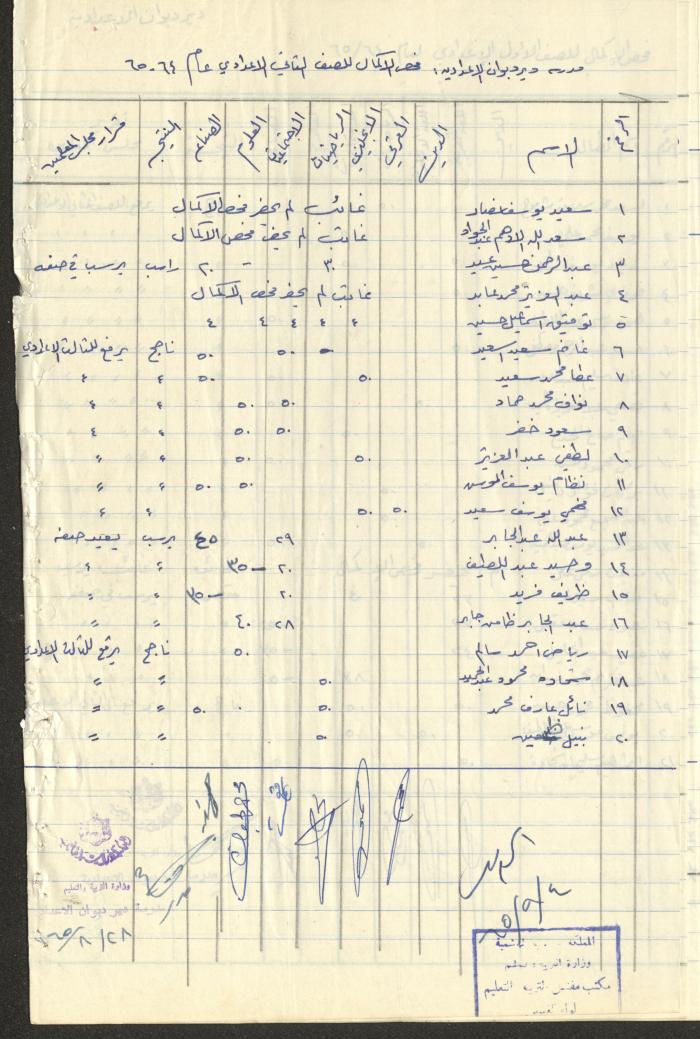 مدرسة ديرديوان الاعدادية: فحص الاكمال للصف الثاني الاعدادي عام ٦٤-٦٥
الرقم الاسم الدين العربي الانجليزي الرياضيات الاجتماعيات العلوم الصناعة النتيجة قرار مجلس المعلمين
١ سعيد يوسف غائب لم يحضر فحص الاكمال
٢ سعد الله الادهم عبد الجواد غائب لم يحضر فحص الاكمال
٣ عبد الرحمن حسين عيد ٣٠ - ٢٠ راسب يرسب في صفه
٤ عبد العزيز محمد عابد غائب لم يحضر فحص الاكمال
٥ توفيق اسماعيل حسين ״ ״ ״ ״ ״
٦ غانم سعيد اسعيد - ٥٠ ٥٠ ناجح يرفع للثالث الاعدادي
٧ عطا محمد سعيد ٥٠ ٥٠ ״ ״
٨ نواف محمد حماد ٥٠ ٥٠ ״ ״
٩ سعود خضر ٥٠ ٥٠ ״ ״
١٠ لطفي عبد العزيز ٥٠ ٥٠ ״ ״
١١ نظام يوسف ٥٠ ٥٠ ״ ״
١٢ فهمي يوسف سعيد ٥٠ ٥٠ ״ ״
١٣ عبد الله عبد الجابر ٢٩ ٤٥ يرسب يعيد صفه
١٤ وحيد عبد اللطيف ٢٠ - ٣٥ ״ ״
١٥ ظريف فريد ٢٠ - ٣٥ ״ ״
١٦ عبد الجابر ظامن جابر ٢٨ ٤٠ ״ ״
١٧ رياض احمد سالم ٥٠ ناجح يرفع للثالث الاعدادي
١٨ شحاده محمود عبد المجيد ٥٠ ״ ״
١٩ نائل عارف محمد ٥٠ ٥٠ ״ ״
٢٠ نبيل ٥٠ ״ ״
وزارة التربية والتعليم
مدرسة دير ديوان الاعدادية
٦٥/٨/٢٨
٦٥/٩/٤
وزارة التربية والتعليم
مكتب مفتش التربية والتعليم